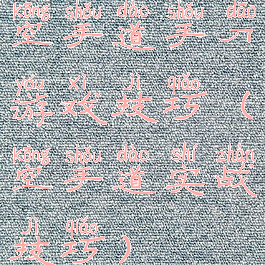 kōng shǒu dào shǒu dāo
空手道手刀
yóu xì jì qiǎo
游戏技巧(
kōng shǒu dào shí zhàn
空手道实战
jì qiǎo
技巧)